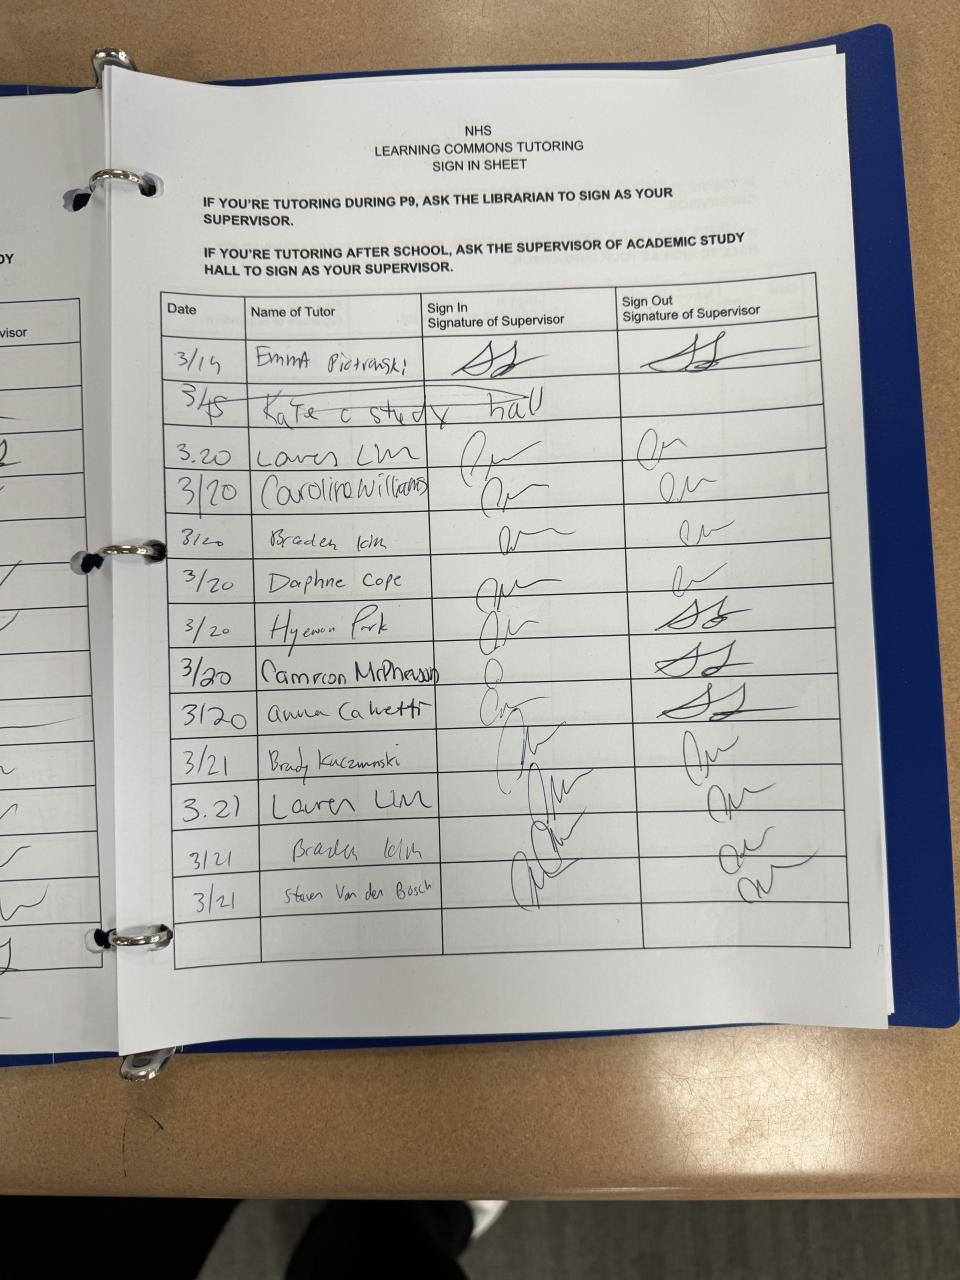 NHS
LEARNING COMMONS TUTORING
SIGN IN SHEET
IF YOU'RE TUTORING DURING P9, ASK THE LIBRARIAN TO SIGN AS YOUR
SUPERVISOR.
IF YOU'RE TUTORING AFTER SCHOOL, ASK THE SUPERVISOR OF ACADEMIC STUDY
HALL TO SIGN AS YOUR SUPERVISOR.
DY
visor
Date Name of Tutor Sign In Signature of Supervisor Sign Out Signature of Supervisor
3/19 Emma Piotrowski
Kate c study hall
3.20 Lauren Lim
3/20 Caroline Williams
3/20 Braden Kim
3/20 Daphne Cope
3/20 Hyewon Park
3/20 Cameron McPherson
3/20 Anna Calvetti
3/21 Brady Kuczynski
3.21 Lauren Lim
3/21 Braden Kim
3/21 Steven Van den Bosch